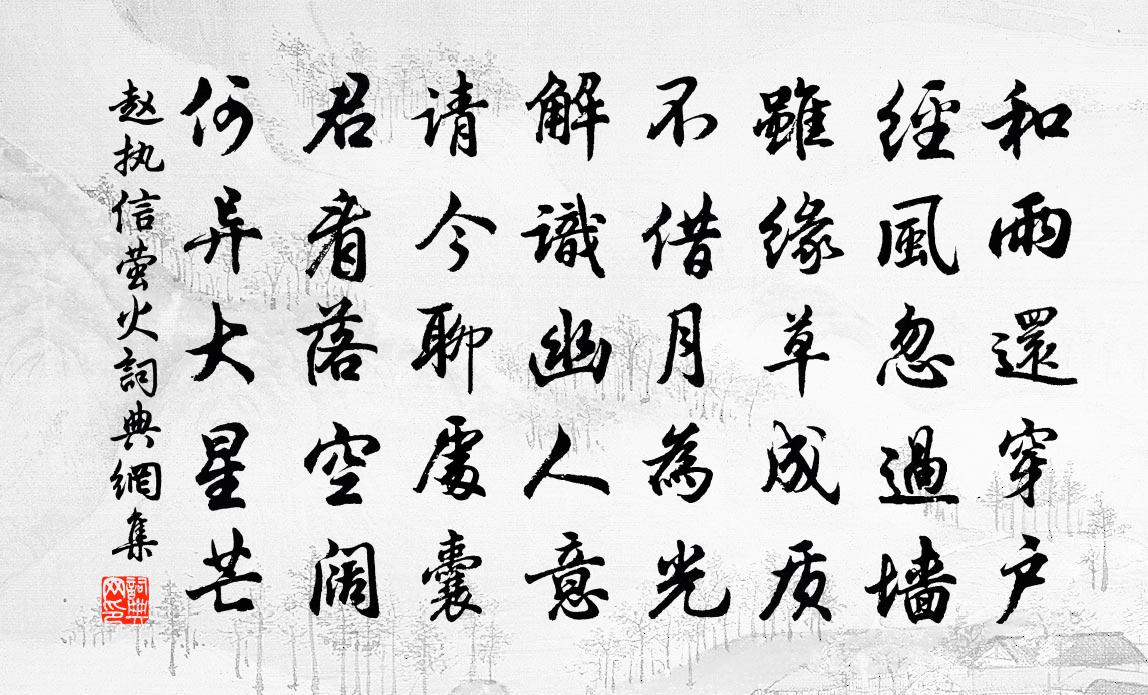 和雨還穿戶
經風忽過墙
雖緣草成质
不借月為光
解識幽人意
请今聊處囊
君看落空阔
何异大星芒
赵执信萤火詞典網集
詞典
网印